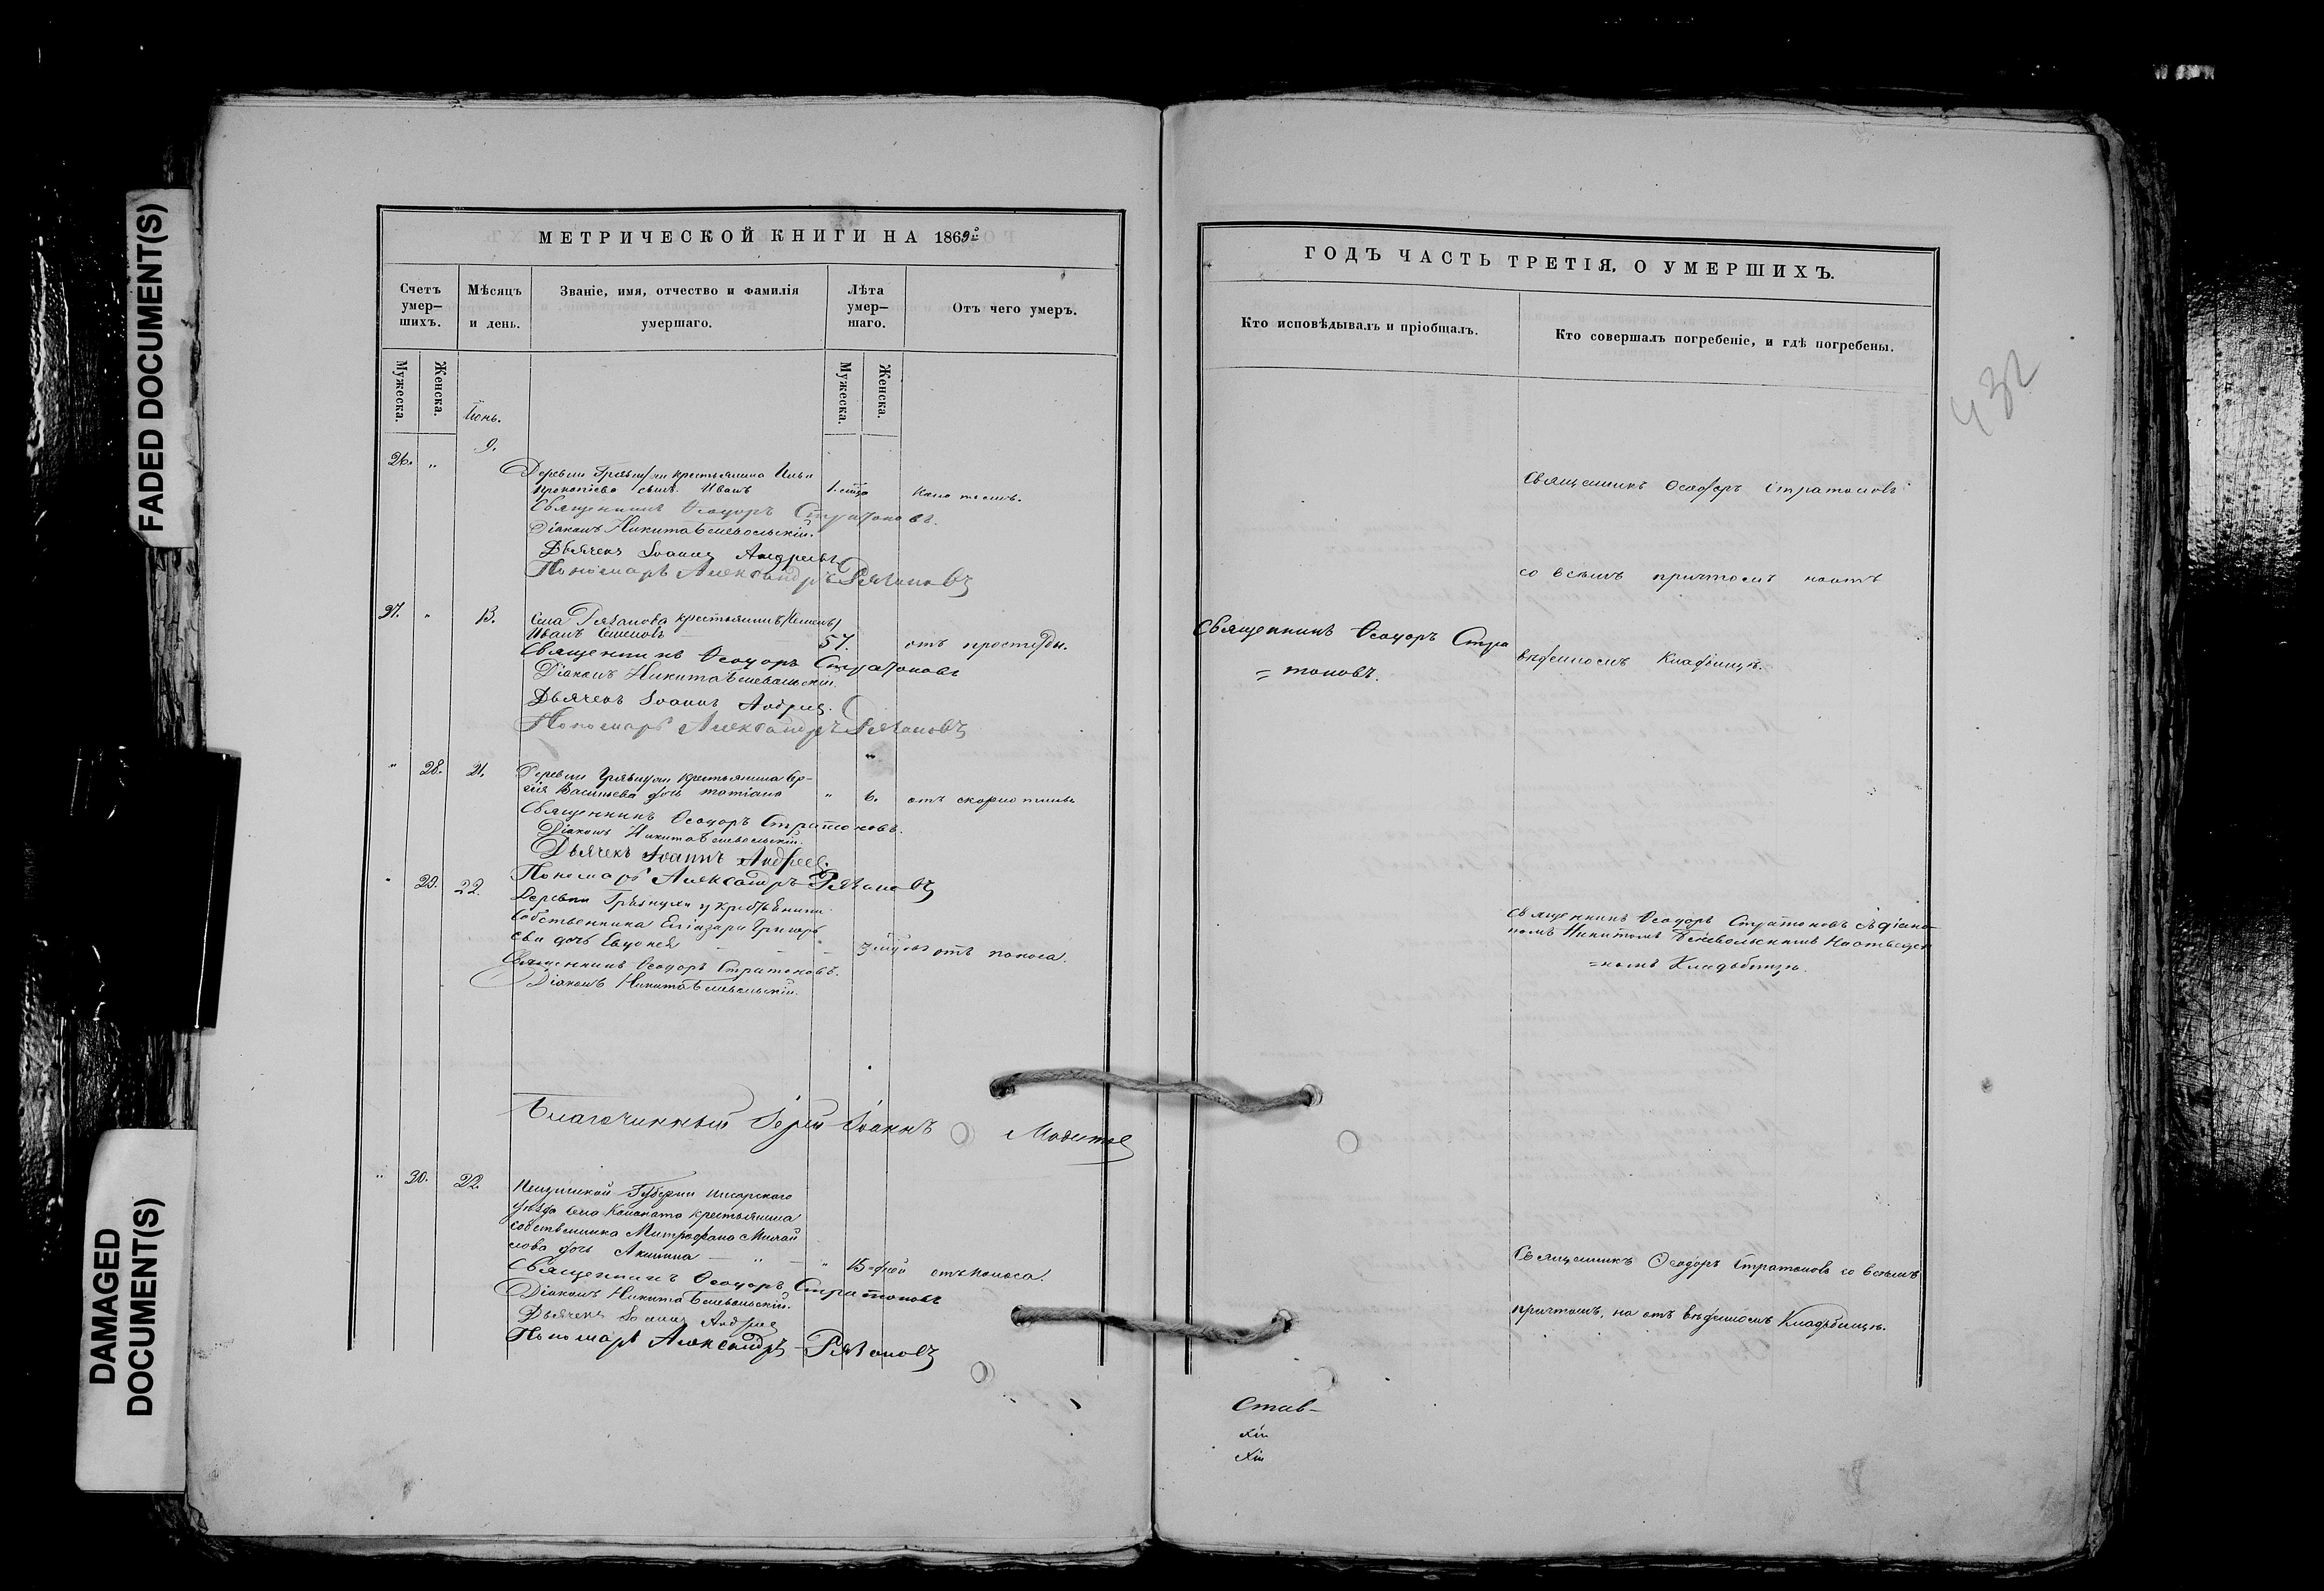 FADED DOCUMENT(S)
DAMAGED
DOCUMENT(S)
МЕТРИЧЕСКОЙ КНИГИ НА 1869
Счетъ
умер-
шихъ.
Мѣсяцъ
и день.
Званіе, имя, отчество и фамилія
умершаго.
Лѣта
умер-
шаго.
Отъ чего умеръ.
Мужеска.
Женска.
Мужеска.
Женска.
Іюнь.
9.
26. "
Деревни крестьянина Ильи
Прокопіева сынъ Иванъ
Священникъ Ѳеодоръ Стратоновъ.
Діаконъ Никита Беневольскій.
Дьячекъ Іоаннъ Андреевъ
Пономарь Александръ Рязановъ
27. " 13. Села Рязанова крестьянинъ
Иванъ Семеновъ 57. отъ простуды.
Священникъ Ѳеодоръ Стратоновъ
Діаконъ Никита Беневольскій.
Дьячекъ Іоаннъ Андреевъ.
Пономарь Александръ Рязановъ
" 28. 21. Деревни Грязнухи крестьянина Сер-
гія Васильева дочь Татіана " 6. отъ
Священникъ Ѳеодоръ Стратоновъ.
Діаконъ Никита Беневольскій.
Дьячекъ Іоаннъ Андреевъ.
Пономарь Александръ Рязановъ
" 29. 22. Деревни Грязнухи крестьянина
Собственника Еліазара Григорь
ева дочь Евдокія 3 отъ поноса.
Священникъ Ѳеодоръ Стратоновъ.
Діаконъ Никита Беневольскій.
Благочинный Іерей Іоаннъ
" 30. 22. Пензинской Губерніи Инсарскаго
уѣзда села крестьянина
собственника Митрофана Михай
лова дочь Акилина " " 15 дней отъ поноса.
Священникъ Ѳеодоръ Стратоновъ
Діаконъ Никита Беневольскій.
Дьячекъ Іоаннъ Андреевъ
Пономарь Александръ Рязановъ
ГОДЪ ЧАСТЬ ТРЕТІЯ, О УМЕРШИХЪ.
Кто исповѣдывалъ и пріобщалъ.
Кто совершалъ погребеніе, и гдѣ погребены.
432
Священникъ Ѳеодоръ Стратоновъ
со всѣмъ причтомъ на отъ
Священникъ Ѳеодоръ Стра
= тоновъ.
вѣденномъ Кладбищѣ.
Священникъ Ѳеодоръ Стратоновъ съ діако-
номъ Никитою Беневольскимъ на отведен
=номъ Кладбищѣ.
Священникъ Ѳеодоръ Стратоновъ со всѣмъ
причтомъ, на отъ вѣденномъ Кладбищѣ.
Став-